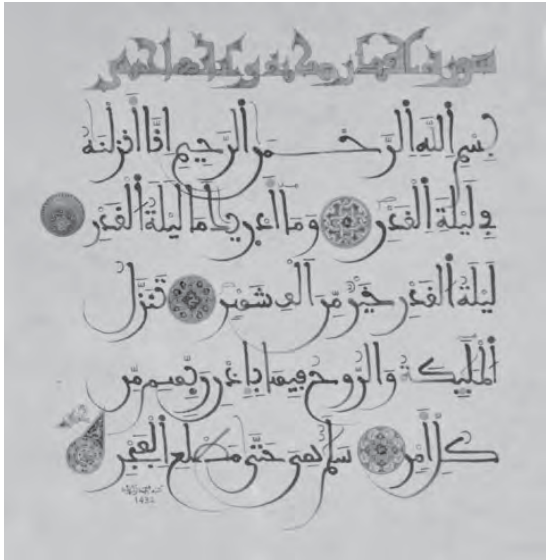 سورة القدر مكية وءاياتها خمس
بِسْمِ اللَّهِ الرَّحْمَنِ الرَّحِيمِ إِنَّا أَنزَلْنَهُ
فِي لَيْلَةِ الْقَدْرِ وَمَا أَدْرِيكَ مَا لَيْلَةُ الْقَدْرِ
لَيْلَةُ الْقَدْرِ خَيْرٌ مِّنْ أَلْفِ شَهْرٍ تَنَزَّلُ
الْمَلَئِكَةُ وَالرُّوحُ فِيهَا بِإِذْنِ رَبِّهِم مِّن
كُلِّ أَمْرٍ سَلَمٌ هِيَ حَتَّى مَطْلَعِ الْفَجْرِ
1432